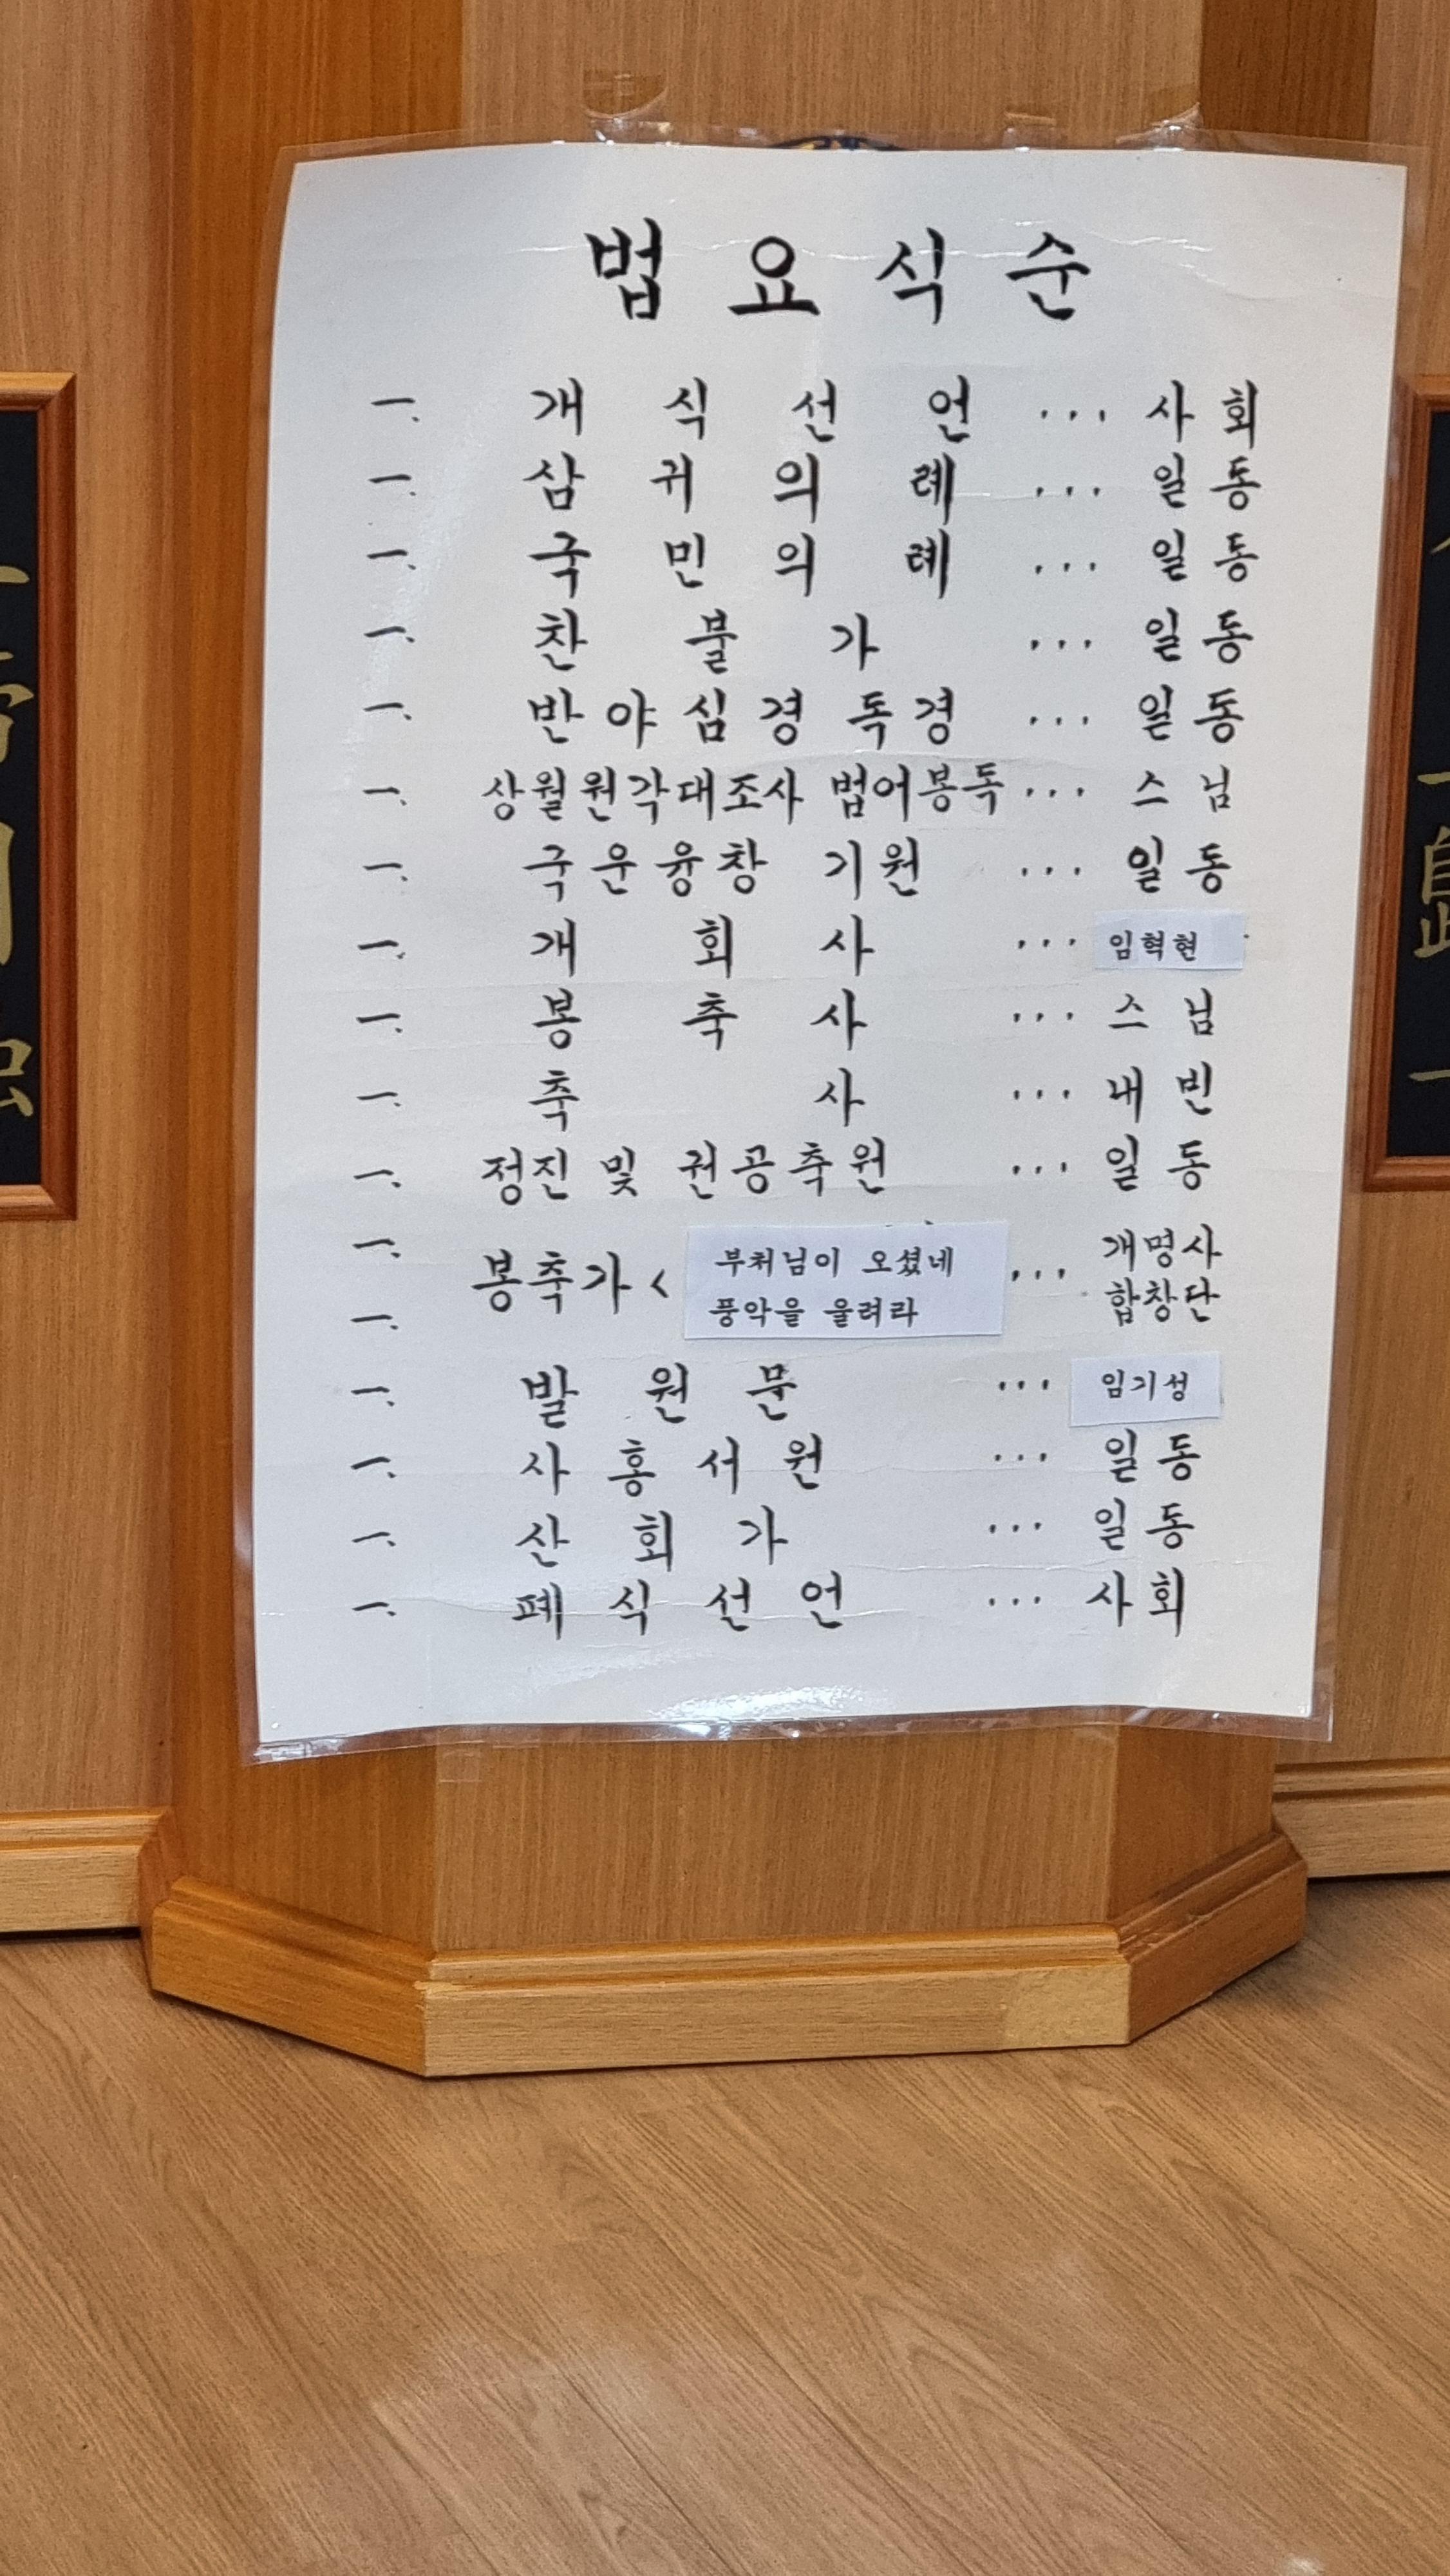 법요식순
一. 개식선언 ... 사회
一. 삼귀의례 ... 일동
一. 국민의례 ... 일동
一. 찬불가 ... 일동
一. 반야심경 독경 ... 일동
一. 상월원각대조사 법어봉독 ... 스님
一. 국운융창 기원 ... 일동
一. 개회사 ... 임혁현
一. 봉축사 ... 스님
一. 축사 ... 내빈
一. 정진 및 권공축원 ... 일동
一. 봉축가 < 부처님이 오셨네 ... 개명사
一. 풍악을 울려라 합창단
一. 발원문 ... 임기성
一. 사홍서원 ... 일동
一. 산회가 ... 일동
一. 폐식선언 ... 사회